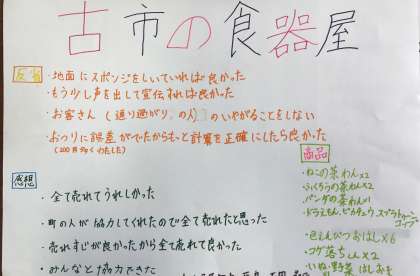 古市の食器屋
反省
・地面にスポンジをしいていれば良かった
・もう少し声を出して宣伝すれば良かった
・お客さん(通り過がり、の人)のいやがることをしない
・おつりに誤差がでたからもっと計算を正確にしたら良かった
(200円多くわたした)
商品
・ねこの茶わん×2
・ふくろうの茶わん×2
・パンダの茶わん×1
・ドラえもん、ピカチュウ、スプラトゥーン
コップ
・色えんぴつおはし×6
・コゲ落ちくん×2
感想
・全て売れてうれしかった
・町の人が協力してくれたので全て売れたと思った
・売れすじが良かったから全て売れて良かった
・みんなと協力できた